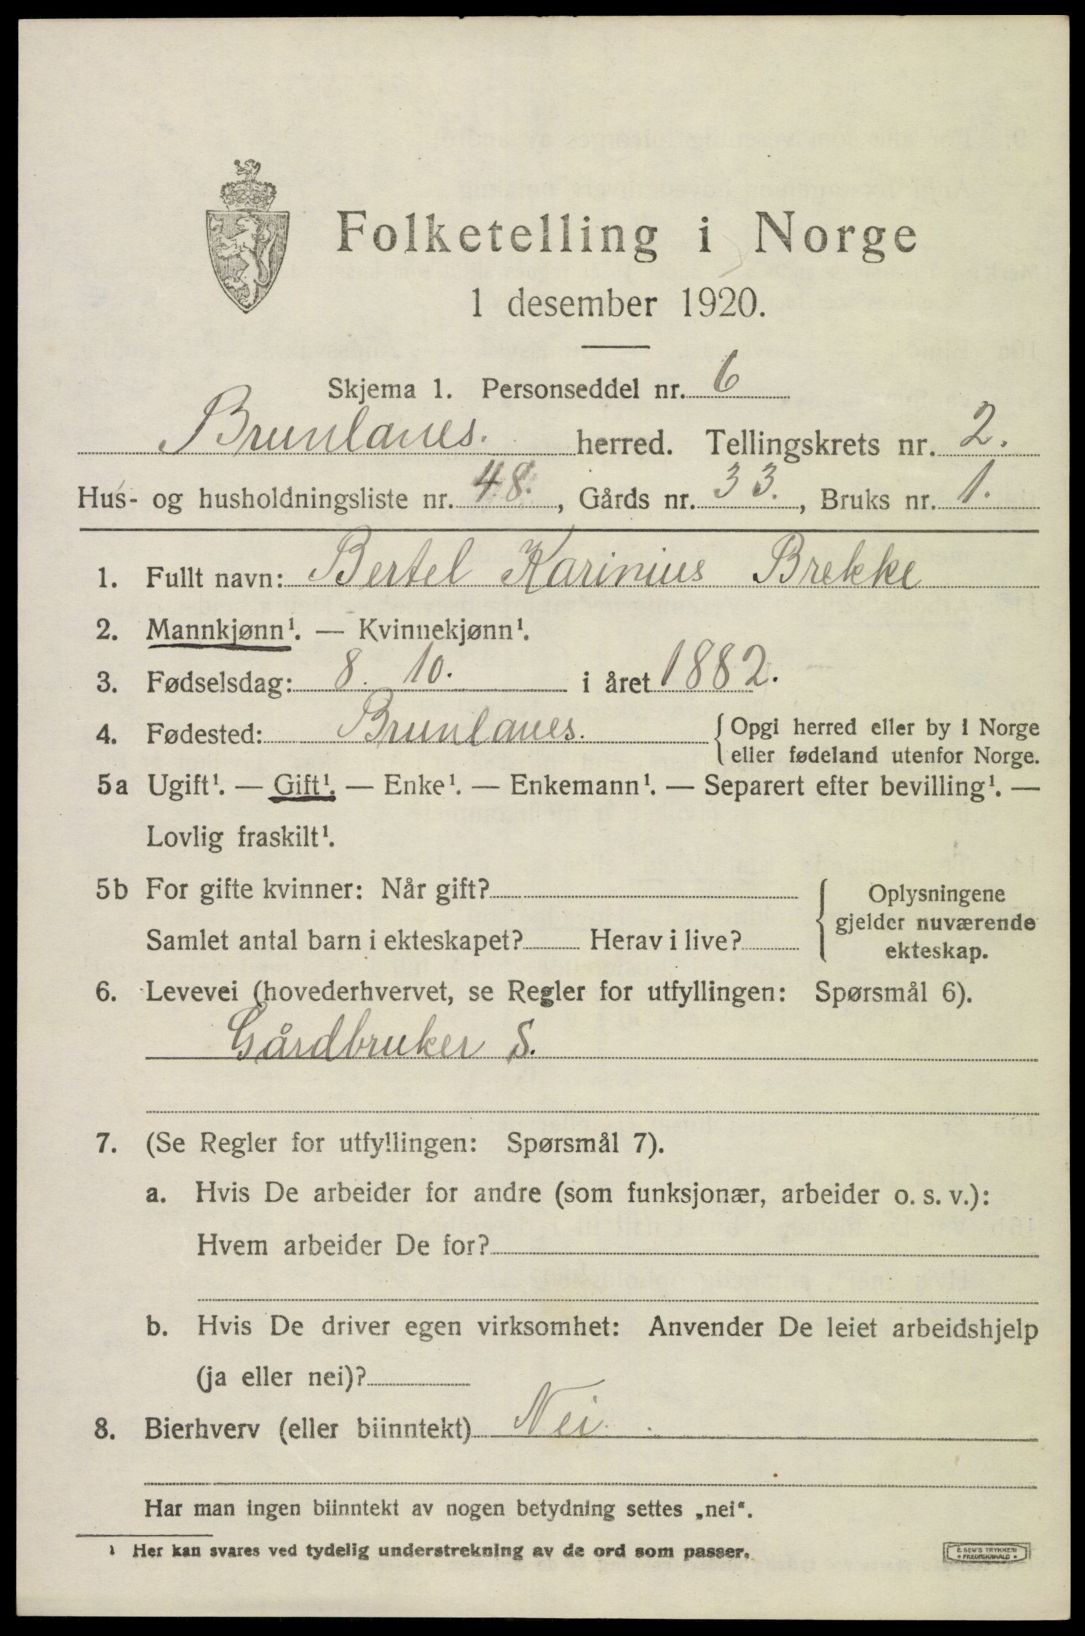 Folketelling i Norge
1 desember 1920.
Skjema 1. Personseddel nr. 6
Brunlanes. herred. Tellingskrets nr. 2.
Hus- og husholdningsliste nr. 48., Gårds nr. 33., Bruks nr. 1.
1. Fullt navn: Bertel Karinius Brekke
2. Mannkjønn¹. — Kvinnekjønn¹.
3. Fødselsdag: 8. 10. i året 1882.
4. Fødested: Brunlanes. { Opgi herred eller by i Norge
eller fødeland utenfor Norge.
5a Ugift¹. — Gift¹. — Enke¹. — Enkemann¹. — Separert efter bevilling¹. —
Lovlig fraskilt¹.
5b For gifte kvinner: Når gift?
Samlet antal barn i ekteskapet? Herav i live?
{ Oplysningene
gjelder nuværende
ekteskap.
6. Levevei (hovederhvervet, se Regler for utfyllingen: Spørsmål 6).
Gårdbruker S.
7. (Se Regler for utfyllingen: Spørsmål 7).
a. Hvis De arbeider for andre (som funksjonær, arbeider o. s. v.):
Hvem arbeider De for?
b. Hvis De driver egen virksomhet: Anvender De leiet arbeidshjelp
(ja eller nei)?
8. Bierhverv (eller biinntekt) Nei.
Har man ingen biinntekt av nogen betydning settes „nei“.
¹ Her kan svares ved tydelig understrekning av de ord som passer.
E. SEM'S TRYKKERI
* FREDRIKSHALD *